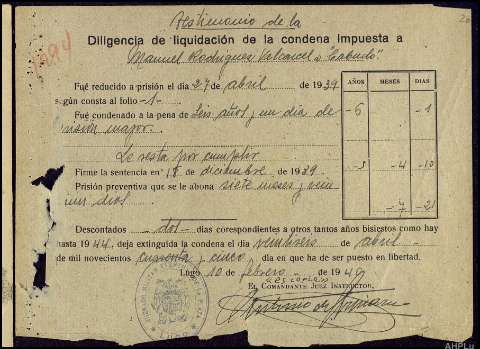 Testimonio de la
20
Diligencia de liquidación de la condena impuesta a
1494
Manuel Rodriguez Valcarcel a "Cabudo"
Fué reducido a prisión el día 27 de abril de 1939
según consta al folio -1-
AÑOS MESES DIAS
Fué condenado a la pena de seis años y un dia de
-6 -1
prisión mayor.
Le resta por cumplir
Firme la sentencia en 18 de diciembre de 1939.
-4 -10
Prisión preventiva que se le abona siete meses y vein
tiun dias
-7 -21
Descontados -dos- días corespondientes a otros tantos años bisiestos como hay
hasta 1944, deja extinguida la condena el día de abril
de mil novecientos cuarenta y cinco, día en que ha de ser puesto en libertad.
Lugo 10 de febrero de 1940
El Comandante Juez Instructor,
LUGO
AHPLu